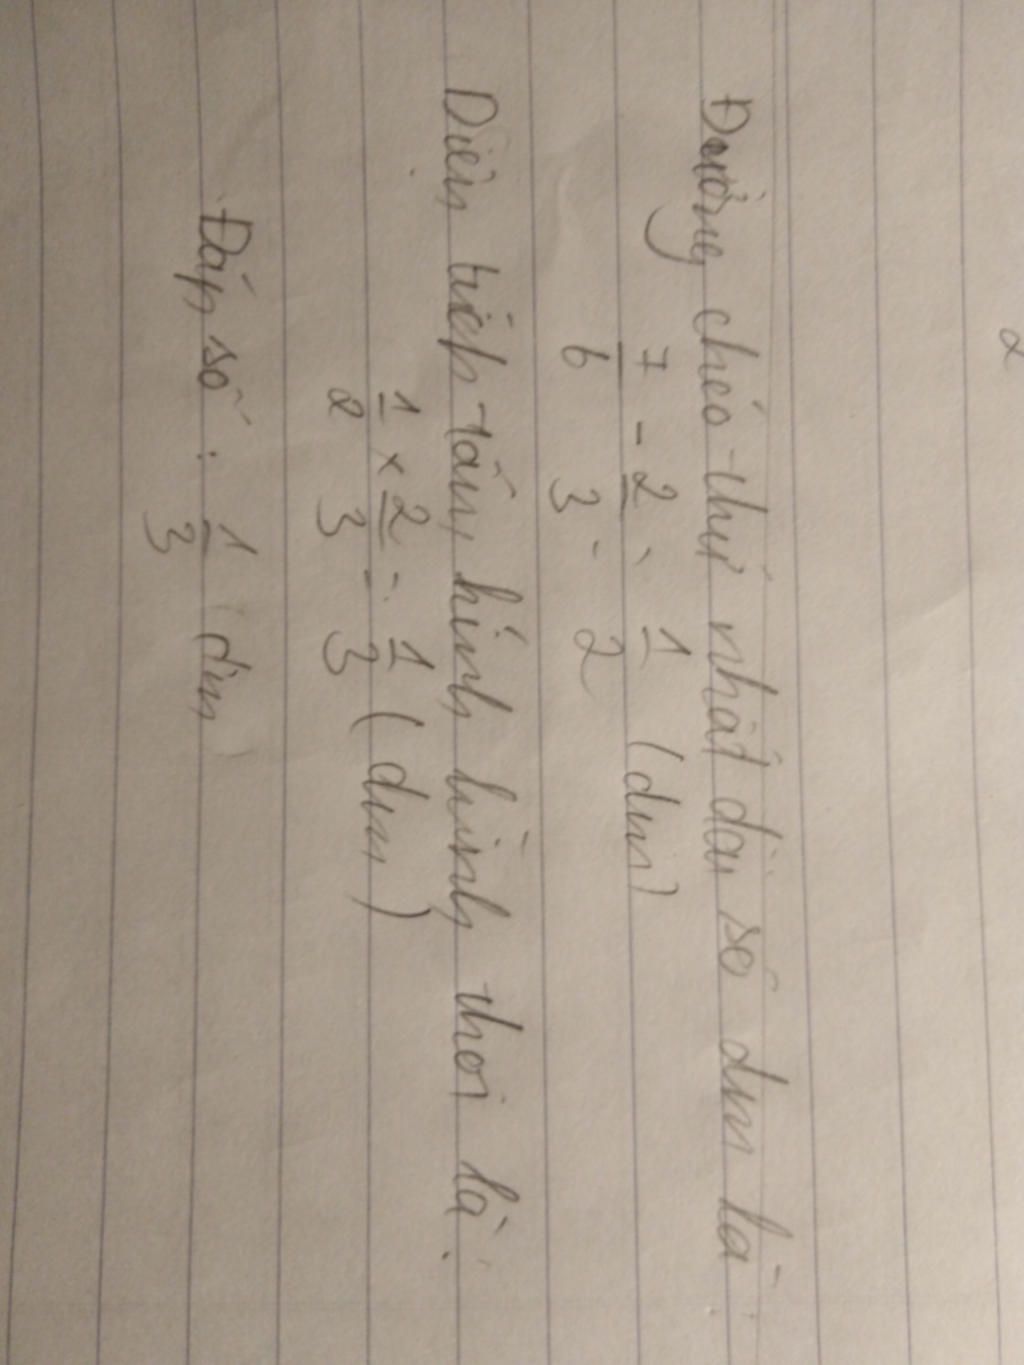 Đường chéo thứ nhất dài số dm là:
7/6 - 2/3 = 1/2 (dm)
Diện tích tấm kính hình thoi là:
1/2 x 2/3 = 1/3 (dm)
Đáp số : 1/3 (dm)
2